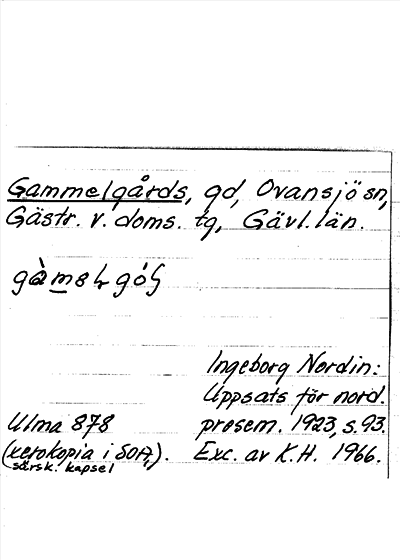 Gammelgårds, gd, Ovansjö sn,
Gästr. v. doms. tg, Gävl. län.
Ingeborg Nordin:
Uppsats för nord.
Ulma 878 prosem. 1923, s. 93.
(xerokopia i SOA,). Exc. av K.H. 1966.
särsk. kapsel